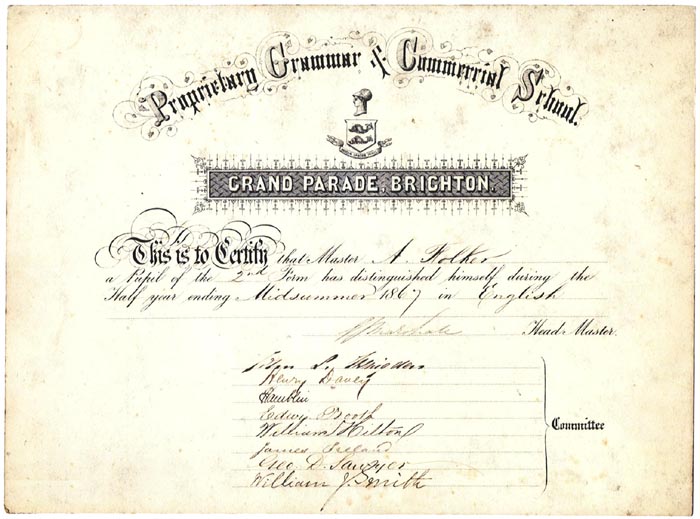 Proprietary Grammar & Commercial School.
GRAND PARADE, BRIGHTON.
This is to Certify that Master A. Folker
a Pupil of the 2nd Form has distinguished himself during the
Half year ending Midsummer 1867 in English
Head Master.
Henry Davey
Edwy
William Hilton
James Ireland
Geo. D. Sawyer
William J. Smith
Committee